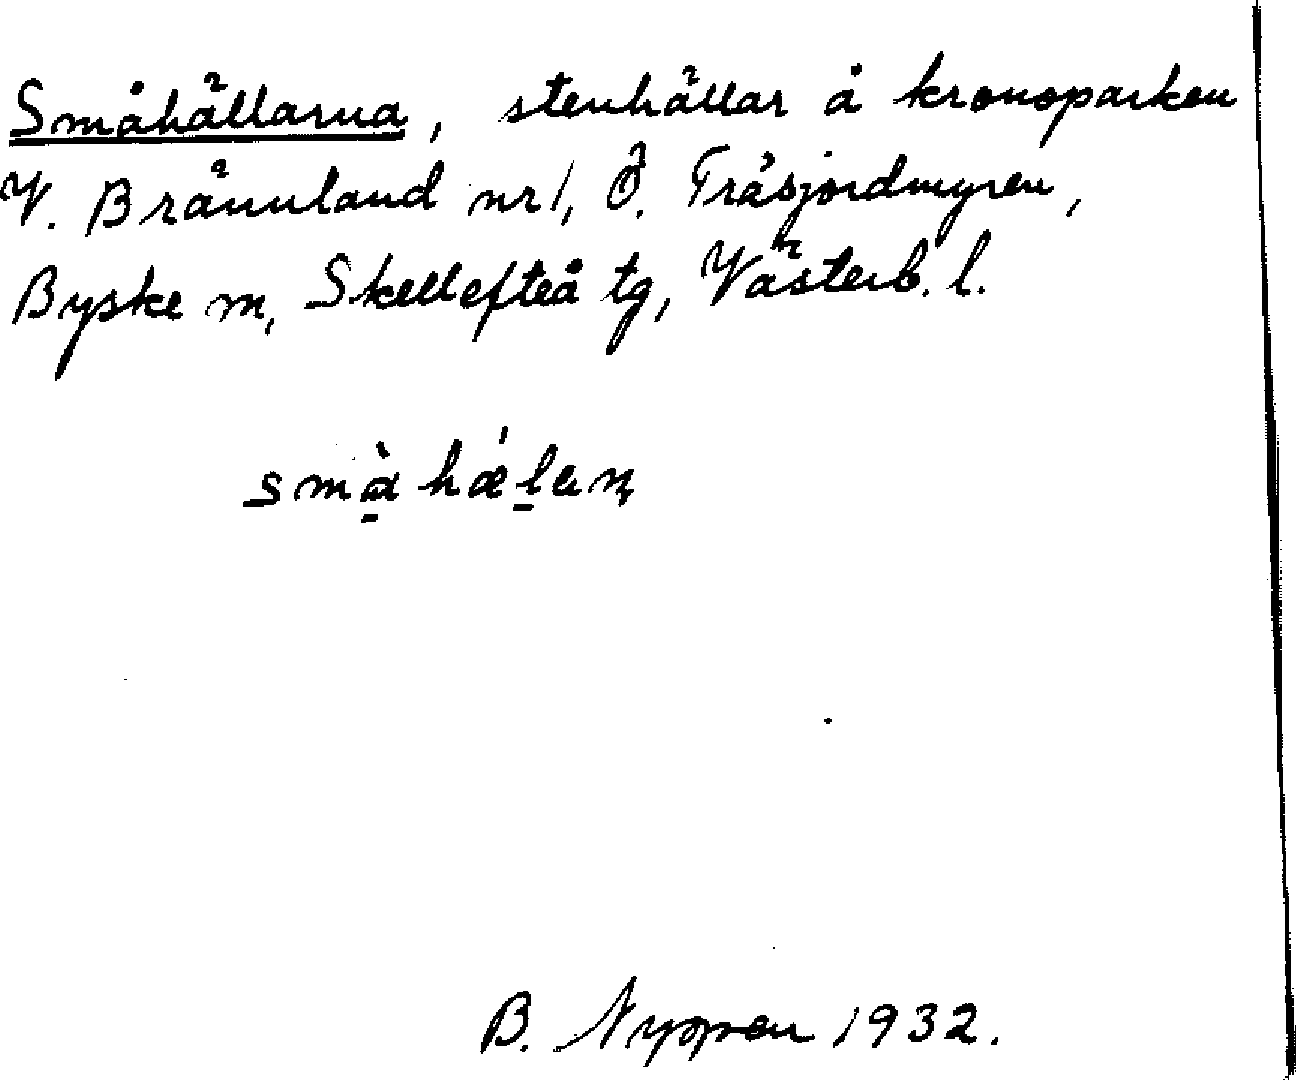 Småhällarna, stenhällar å kronoparken
V. Brännland nr 1, Ö. Fräsjordmyren,
Byske m, Skellefteå tg, Västerb. l.
B. Nyppen 1932.